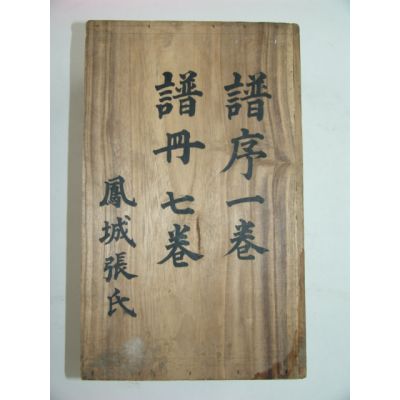 譜序一卷
譜冊七卷
鳳城張氏